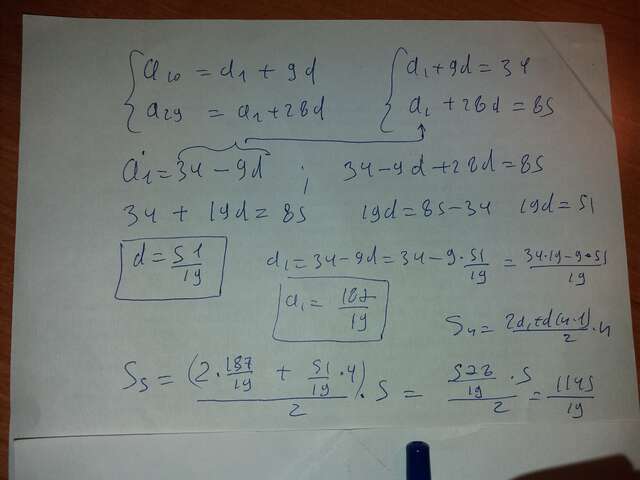 { a₁₀ = a₁ + 9d { a₁ + 9d = 34
{ a₂₉ = a₁ + 28d { a₁ + 28d = 85
a₁ = 34 - 9d ; 34 - 9d + 28d = 85
34 + 19d = 85 19d = 85 - 34 19d = 51
d = 51/19 a₁ = 34 - 9d = 34 - 9 · 51/19 = (34·19 - 9·51)/19
a₁ = 187/19 Sₙ = (2a₁ + d(n-1))/2 · n
S₅ = (2 · 187/19 + 51/19 · 4)/2 · 5 = (578/19)/2 · 5 = 1445/19